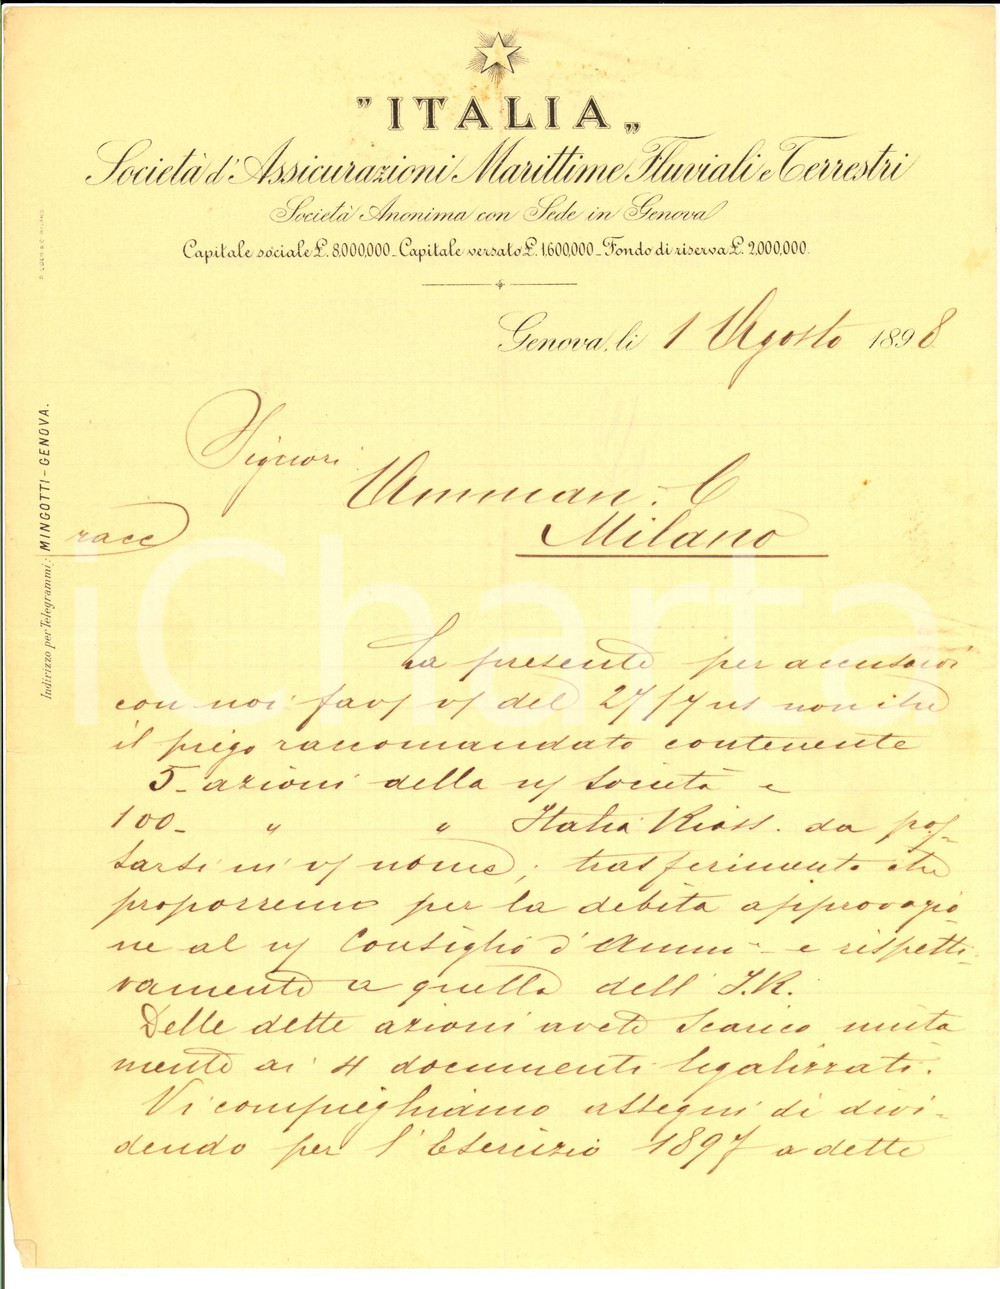 "ITALIA„
Società d'Assicurazioni Marittime Fluviali e Terrestri
Società Anonima con Sede in Genova
Capitale sociale £. 8,000,000 _ Capitale versato £. 1,600,000 _ Fondo di riserva £. 2,000,000.
Genova, li 1 Agosto 1898
Signori
Amman & C
Milano
racc
Indirizzo per Telegrammi: MINGOTTI-GENOVA.
iCharta
La presente per accusarvi
con noi fav/ v/ del 27/7 us nonchè
il piego raccomandato contenente
5 - azioni della n/ Società e
100 - " " Italia Riass. da po-
tarsi in v/ nome; trasferimento che
proporremo per la debita approvazio
ne al n/ Consiglio d'Amm. - e rispetti-
vamente a quello dell' I.R.
Delle dette azioni avete scarico unita
mente ai 4 documenti legalizzati.
Vi compieghiamo assegni di divi-
dendo per l'Esercizio 1897 a dette